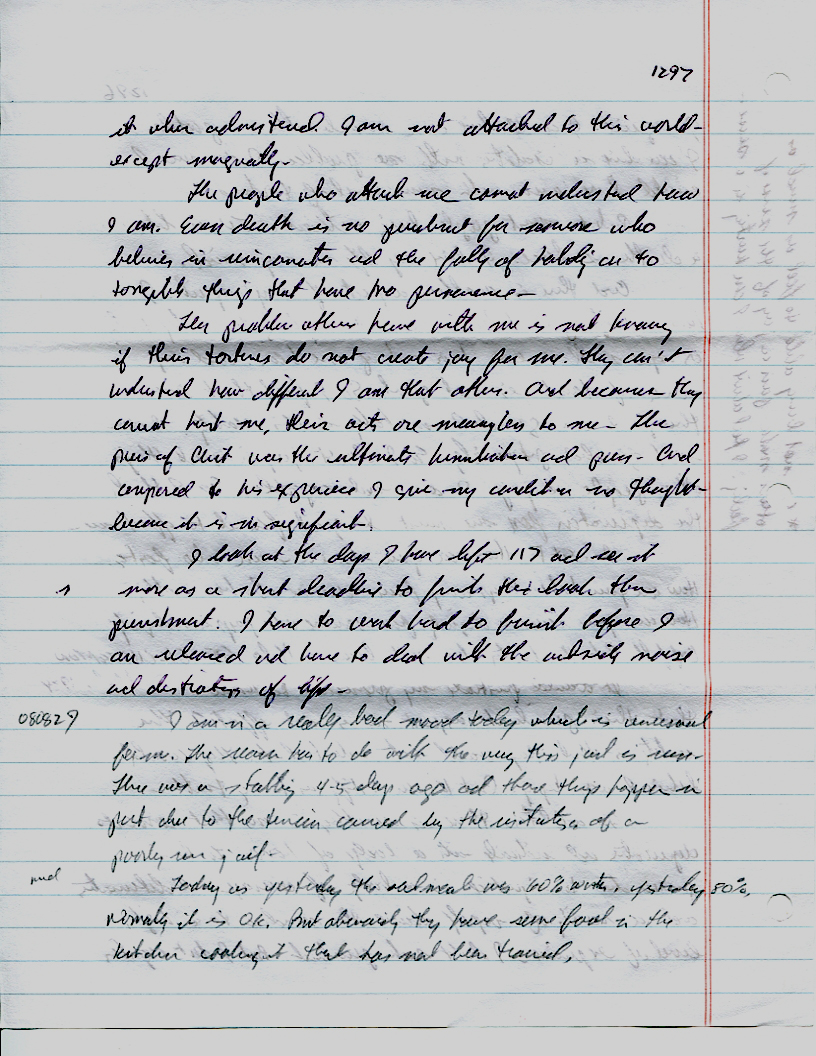 1297
it when administered. I am not attached to this world -
except marginally.
The people who attack me cannot understand how
I am. Even death is no punishment for someone who
believes in reincarnation and the folly of holding on to
tangible things that have no permanence -
The problem others have with me is not knowing
if their tortures do not create joy for me. They can't
understand how different I am than others. And because they
cannot hurt me, their acts are meaningless to me - The
of Christ was the ultimate humiliation and pain - And
compared to his experience I give my condition no thought -
because it is insignificant.
I look at the days I have left 117 and see it
more as a short deadline to finish this book than
punishment. I have to work hard to finish before I
am released and have to deal with the outside noise
and distractions of life -
080829
I am in a really bad mood today which is unusual
for me. The reason has to do with the way this jail is run -
There was a stabbing 4-5 days ago and these things happen in
part due to the tension caused by the of a
poorly run jail -
Today as yesterday the oatmeal was 60% water, yesterday 80%,
normally it is OK. But obviously they have some fool in the
kitchen cooking it that has not been trained,